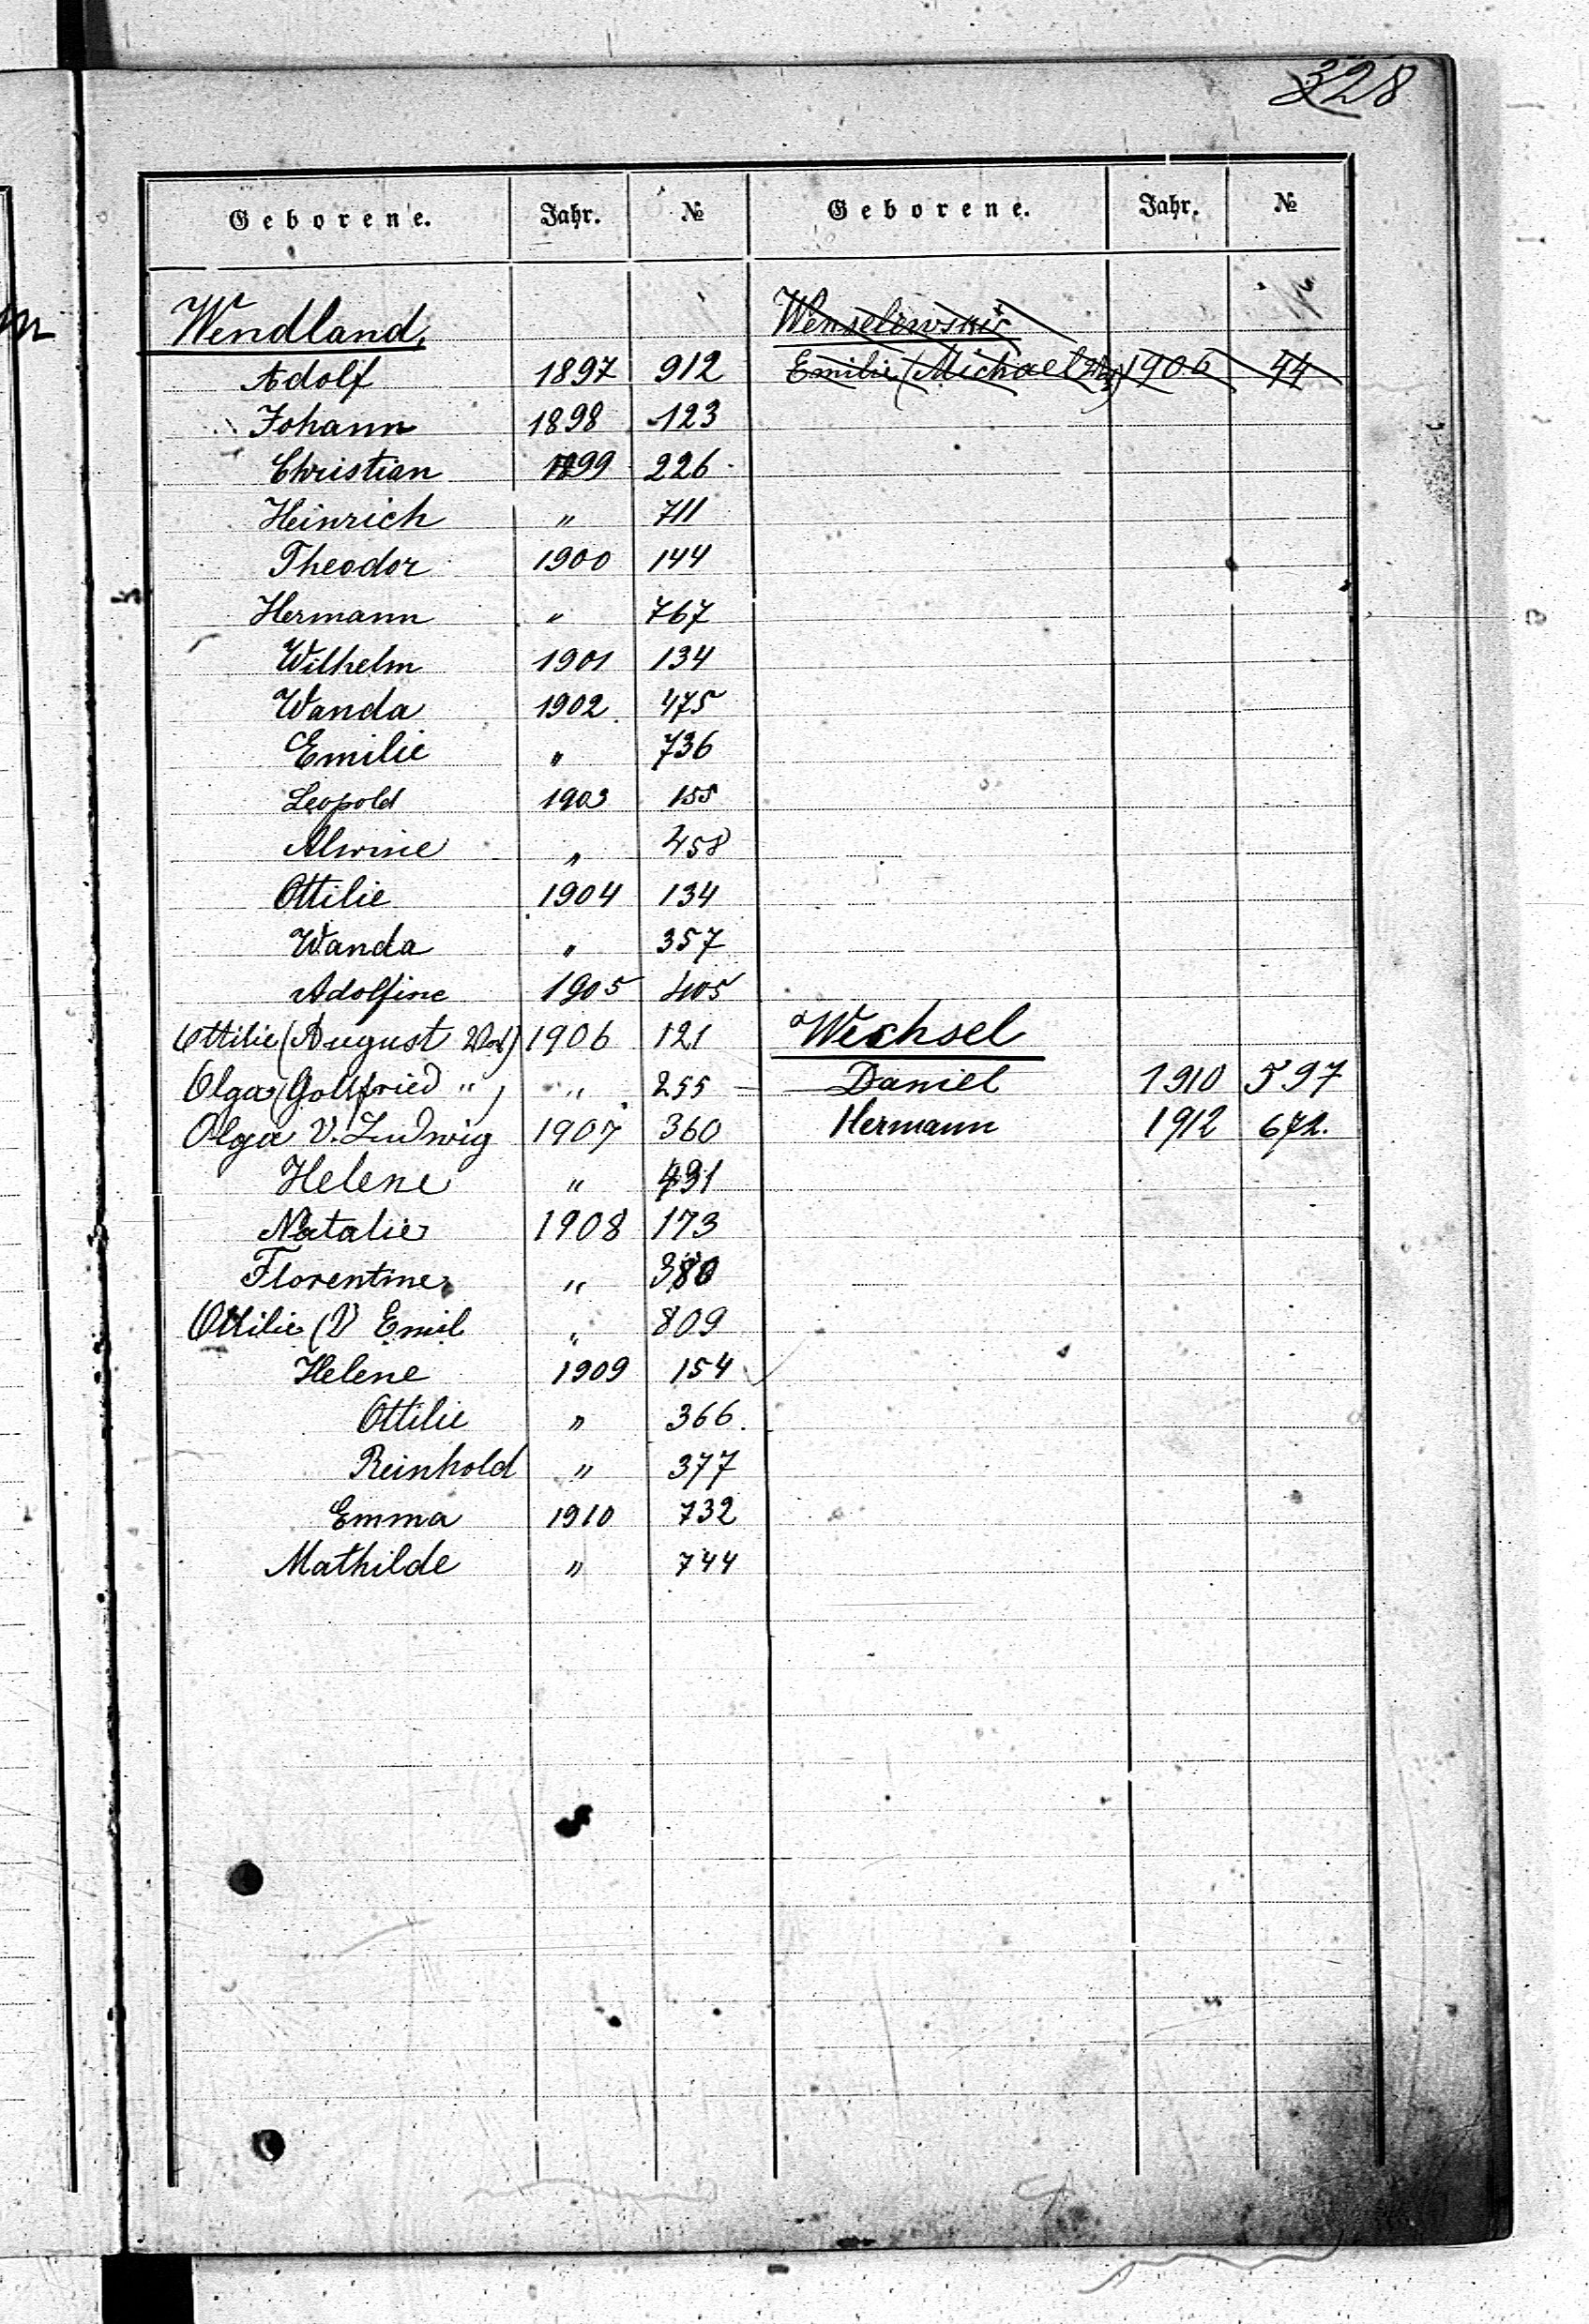 328
Geborene. Jahr. № Geborene. Jahr. №
Wendland,
Adolf 1897 912
Johann 1898 123
Christian 1899 226
Heinrich " 711
Theodor 1900 144
Hermann " 767
Wilhelm 1901 134
Wanda 1902 475
Emilie " 736
Leopold 1903 155
Alwine " 458
Ottilie 1904 134
Wanda " 357
Adolfine 1905 405
Ottilie (August 1906 121
Olga (Gottfried " ) " 255
Olga V. Ludwig 1907 360
Helene " 431
Natalie 1908 173
Florentine " 380
Ottilie (V Emil " 809
Helene 1909 154
Ottilie " 366.
Reinhold " 377
Emma 1910 732
Mathilde " 744
Emilie (Michael 1906 44
Wechsel
Daniel 1910 597
Hermann 1912 672.